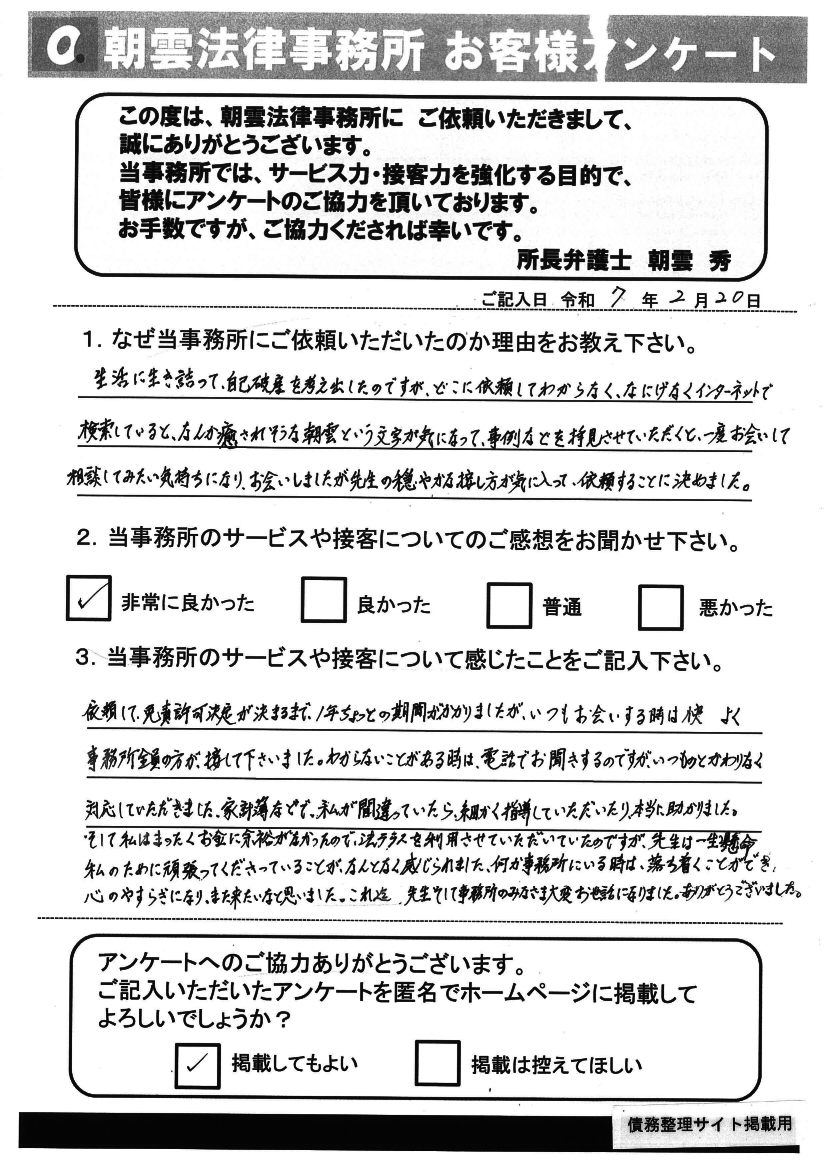 a. 朝雲法律事務所 お客様アンケート
この度は、朝雲法律事務所に ご依頼いただきまして、
誠にありがとうございます。
当事務所では、サービス力・接客力を強化する目的で、
皆様にアンケートのご協力を頂いております。
お手数ですが、ご協力くだされば幸いです。
所長弁護士 朝雲 秀
ご記入日 令和 7 年 2 月 20 日
1. なぜ当事務所にご依頼いただいたのか理由をお教え下さい。
生活に生き詰って、自己破産を考え出したのですが、どこに依頼してわからなく、なにげなくインターネットで
検索していると、なんか癒されそうな朝雲という文字が気になって、事例などを拝見させていただくと、一度お会いして
相談してみたい気持ちになり、お会いしましたが先生の穏やかな接し方が気に入って、依頼することに決めました。
2. 当事務所のサービスや接客についてのご感想をお聞かせ下さい。
✓ 非常に良かった 良かった 普通 悪かった
3. 当事務所のサービスや接客について感じたことをご記入下さい。
依頼して、免責許可決定が決まるまで、1年ちょっとの期間がかかりましたが、いつもお会いする時は快 よく
事務所全員の方が、接して下さいました。わからないことがある時は、電話でお聞きするのですが、いつものとかわりなく
対応していただきました、家計簿などで、私が間違っていたら、細かく指導していただいたり、本当に助かりました。
そして私はまったくお金に余裕がなかったので、法テラスを利用させていただいていたのですが、先生は一生懸命
私のために頑張ってくださっていることが、なんとなく感じられました、何か事務所にいる時は、落ち着くことができ、
心のやすらぎになり、また来たいなと思いました。これ迄 先生そして事務所のみなさま大変お世話になりました。ありがとうございました。
アンケートへのご協力ありがとうございます。
ご記入いただいたアンケートを匿名でホームページに掲載して
よろしいでしょうか？
✓ 掲載してもよい 掲載は控えてほしい
債務整理サイト掲載用